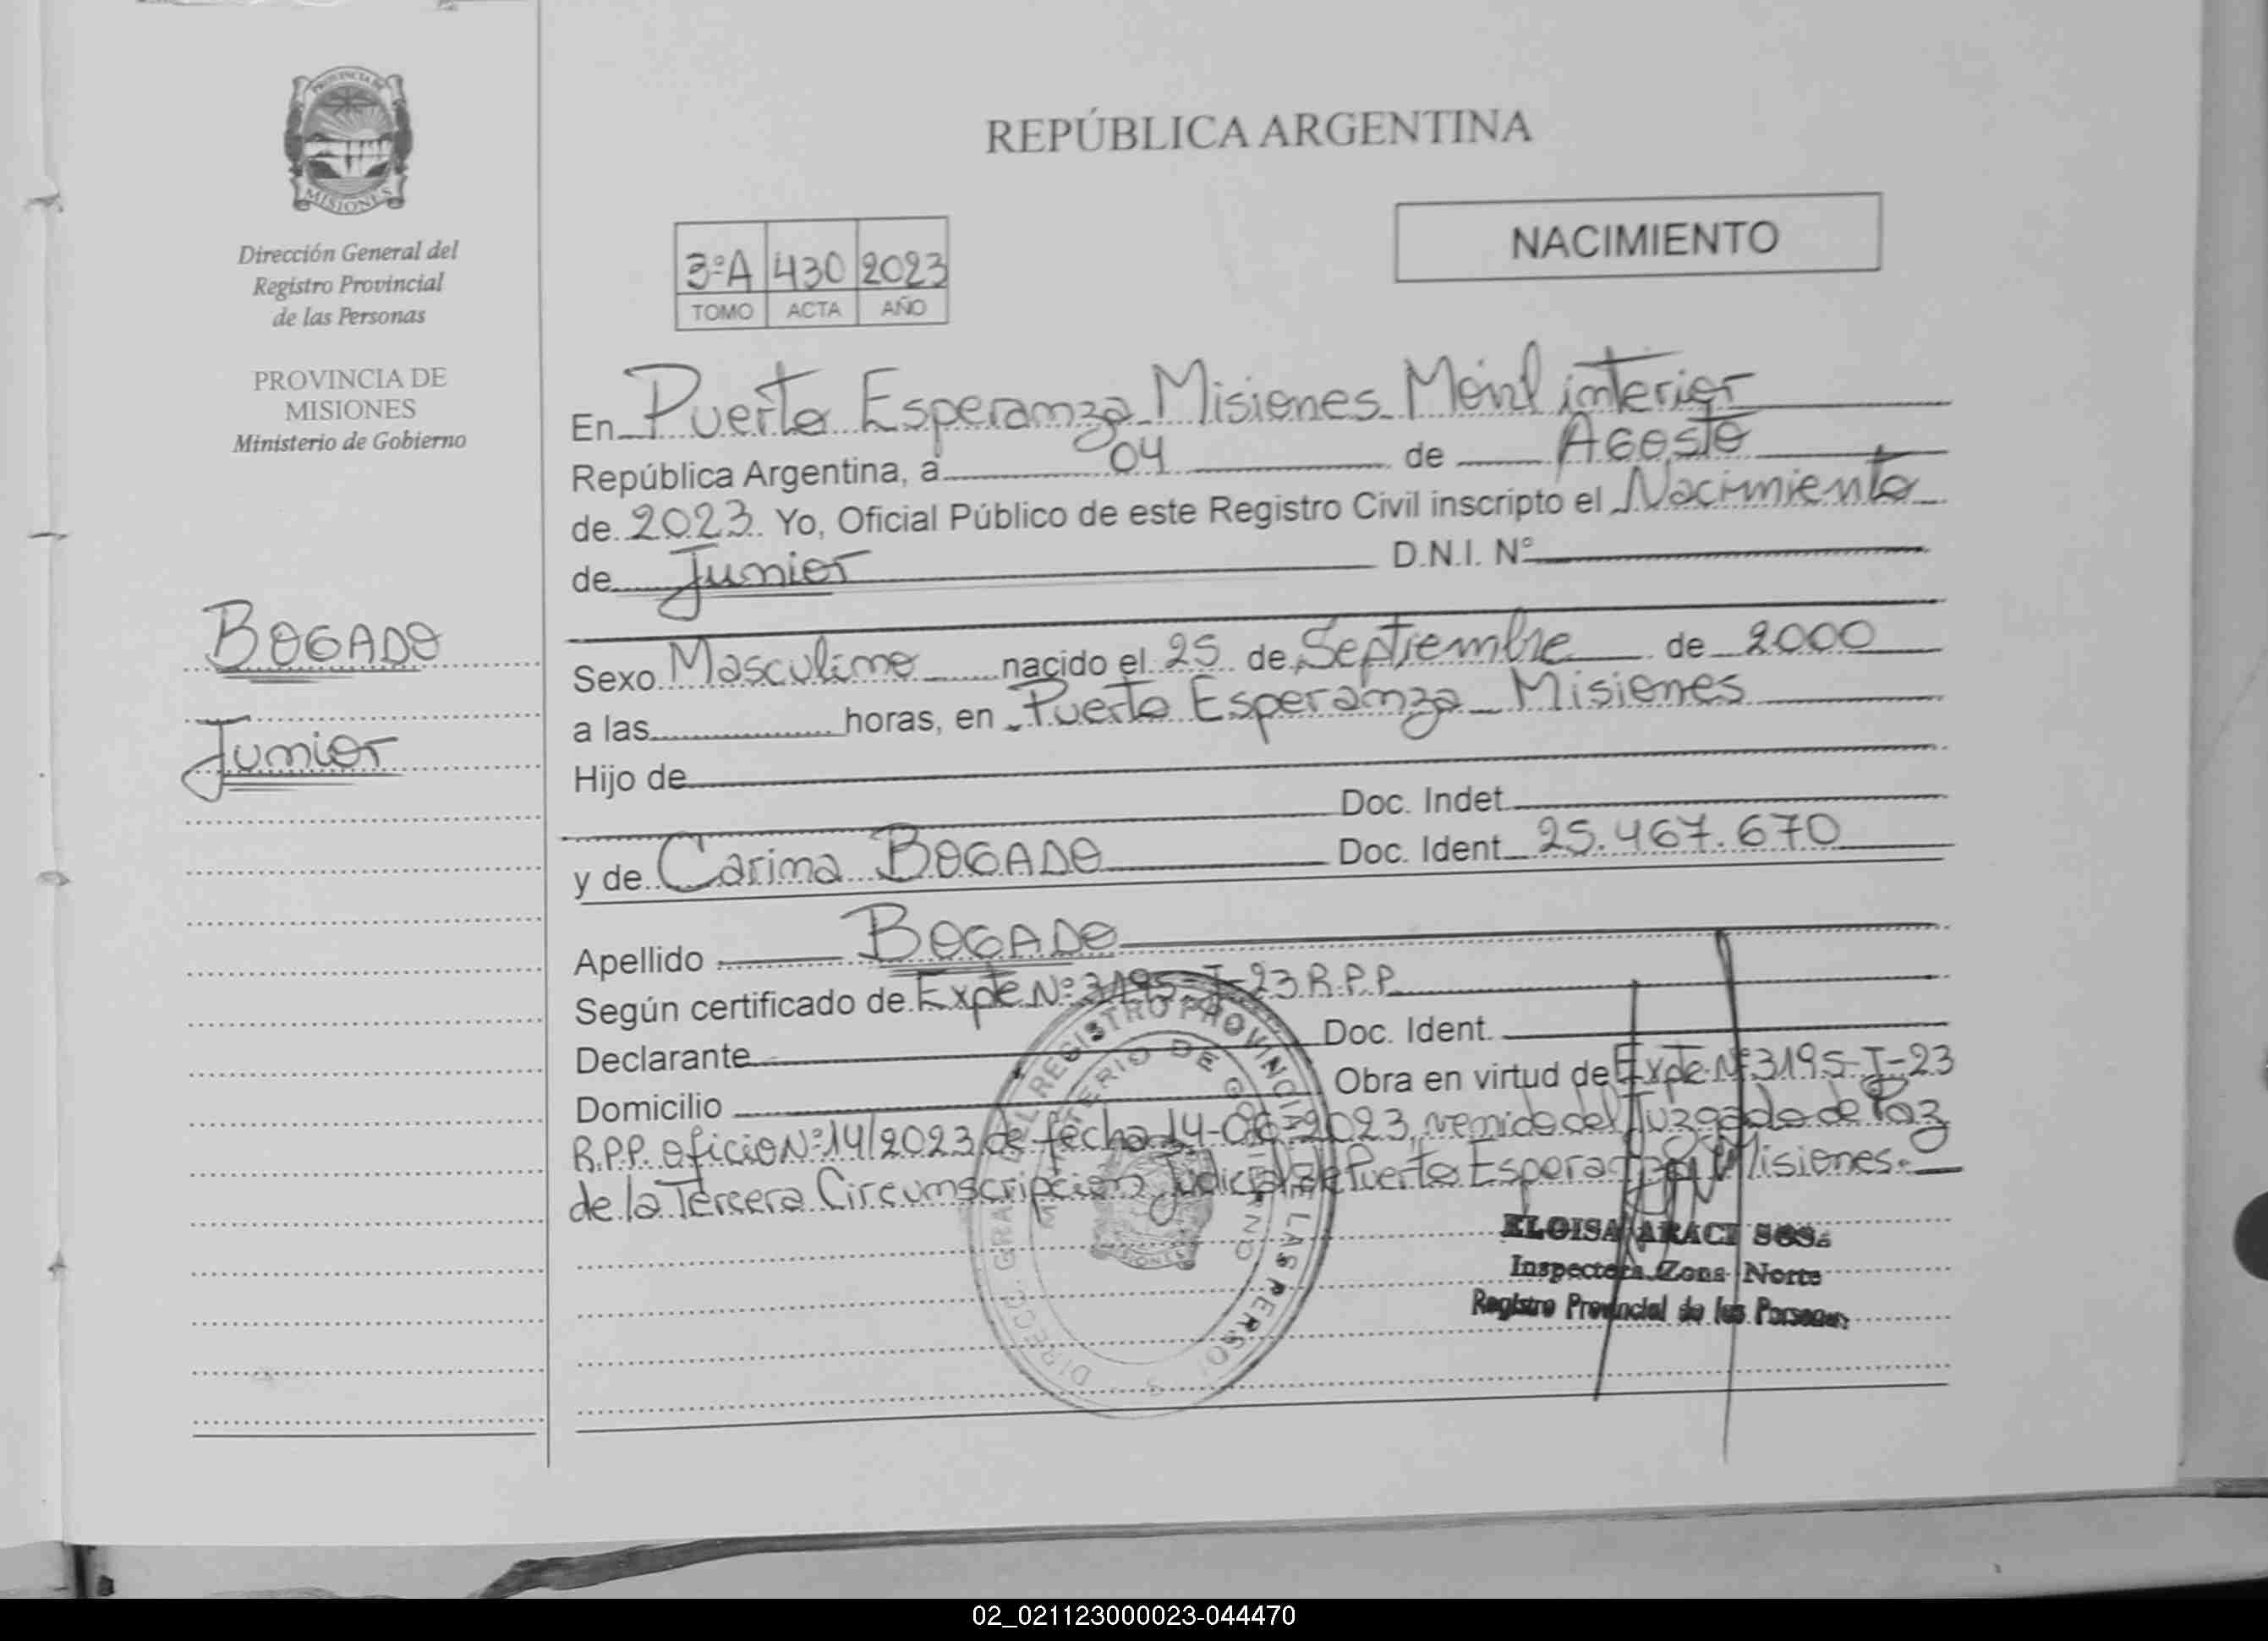 PROVINCIA DE
MISIONES
Dirección General del
Registro Provincial
de las Personas
PROVINCIA DE
MISIONES
Ministerio de Gobierno
BOGADO
Junior
REPÚBLICA ARGENTINA
NACIMIENTO
3ºA 430 2023
TOMO ACTA AÑO
En Puerto Esperanza Misiones Móvil interior
República Argentina, a 04 de Agosto
de 2023 Yo, Oficial Público de este Registro Civil inscripto el Nacimiento
de Junior D.N.I. Nº
Sexo Masculino nacido el 25 de Septiembre de 2000
a las horas, en Puerto Esperanza Misiones
Hijo de
Doc. Indet.
y de Carina BOGADO Doc. Ident. 25.467.670
Apellido BOGADO
Según certificado de Expte Nº 3195-J-23 R.P.P.
Declarante Doc. Ident.
Domicilio Obra en virtud de Expte Nº 3195-J-23
R.P.P. oficio Nº 14/2023 de fecha 14-06-2023, venido del Juzgado de Paz
de la Tercera Circunscripción Judicial de Puerto Esperanza Misiones.
DIRECC. GRAL. DEL REGISTRO PROVINCIAL DE LAS PERSO
MINISTERIO DE GOBIERNO
ELOISA ARACI SOSA
Inspectora Zona Norte
Registro Provincial de las Personas
02_021123000023-044470